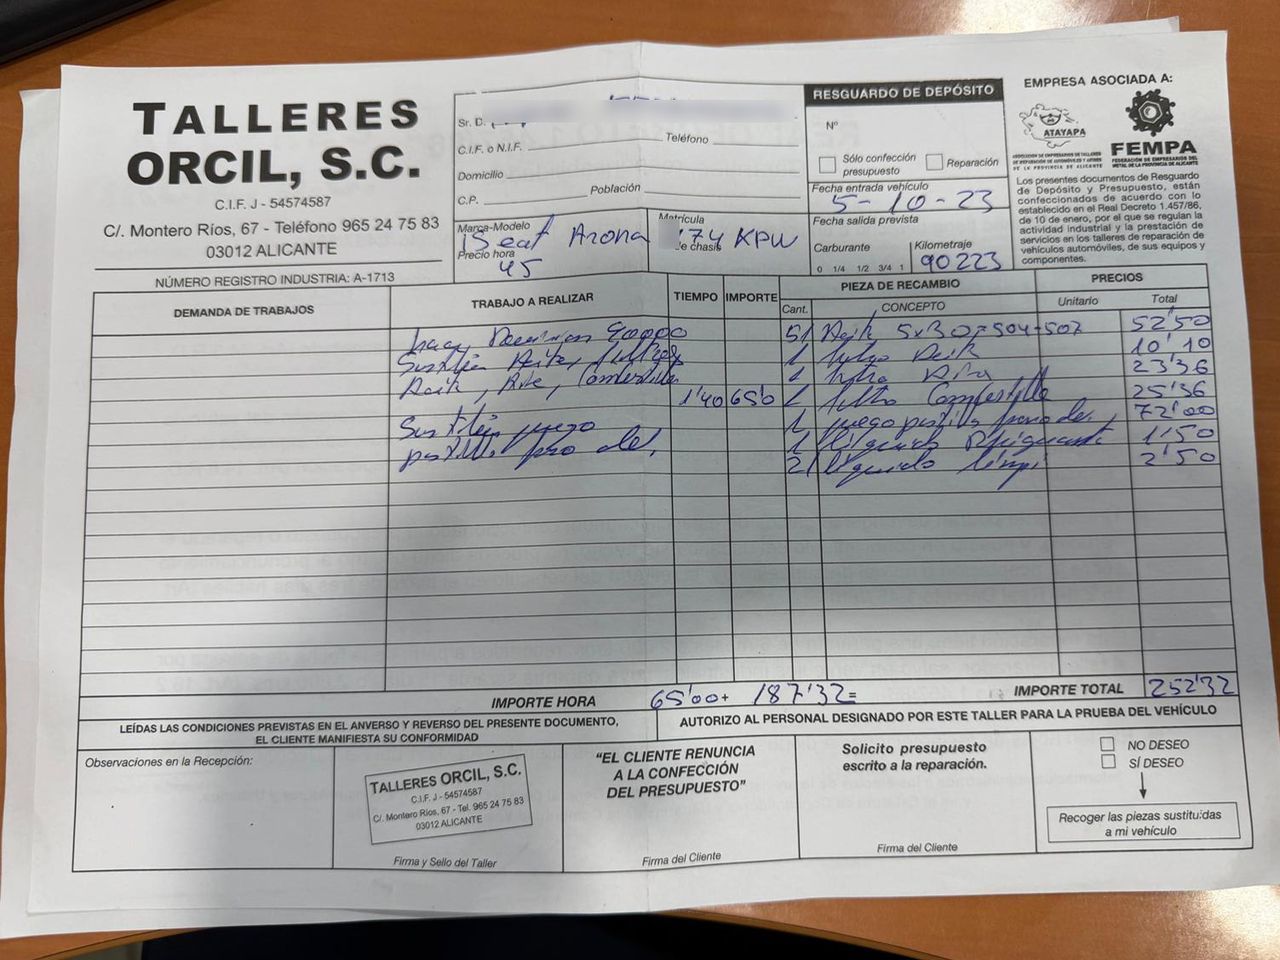 TALLERES
ORCIL, S.C.
C.I.F. J - 54574587
C/. Montero Ríos, 67 - Teléfono 965 24 75 83
03012 ALICANTE
NÚMERO REGISTRO INDUSTRIA: A-1713
Sr. D.
C.I.F. o N.I.F.
Teléfono
Domicilio
C.P.
Población
Marca-Modelo
Seat Arona
Matrícula
74 KPW
de chasis
Precio hora
45
RESGUARDO DE DEPÓSITO
Nº
Sólo confección presupuesto
Reparación
Fecha entrada vehículo
5-10-23
Fecha salida prevista
Carburante
0 1/4 1/2 3/4 1
Kilometraje
90223
EMPRESA ASOCIADA A:
ATAYAPA
ASOCIACIÓN DE EMPRESARIOS DE TALLERES
DE REPARACIÓN DE AUTOMÓVILES Y AFINES
DE LA PROVINCIA DE ALICANTE
FEMPA
FEDERACIÓN DE EMPRESARIOS DEL
METAL DE LA PROVINCIA DE ALICANTE
Los presentes documentos de Resguardo
de Depósito y Presupuesto, están
confeccionados de acuerdo con lo
establecido en el Real Decreto 1.457/86,
de 10 de enero, por el que se regulan la
actividad industrial y la prestación de
servicios en los talleres de reparación de
vehículos automóviles, de sus equipos y
componentes.
DEMANDA DE TRABAJOS
TRABAJO A REALIZAR
TIEMPO
IMPORTE
PIEZA DE RECAMBIO
PRECIOS
Cant.
CONCEPTO
Unitario
Total
Hacer Revision 90000
Aceite, filtros
Aceite, Aire, Combustible
1'40 65'0
juego
del.
5 l Aceite 5x30-504-507 52'50
1 filtro Aceite 10'10
1 filtro Aire 23'36
1 filtro Combustible 25'36
1 juego pastillas freno del. 72'00
1 liquido Refrigerante 1'50
2 l liquido limpi 2'50
IMPORTE HORA
65'00 + 187'32 =
IMPORTE TOTAL
252'32
LEÍDAS LAS CONDICIONES PREVISTAS EN EL ANVERSO Y REVERSO DEL PRESENTE DOCUMENTO,
EL CLIENTE MANIFIESTA SU CONFORMIDAD
AUTORIZO AL PERSONAL DESIGNADO POR ESTE TALLER PARA LA PRUEBA DEL VEHÍCULO
Observaciones en la Recepción:
TALLERES ORCIL, S.C.
C.I.F. J - 54574587
C/. Montero Ríos, 67 - Tel. 965 24 75 83
03012 ALICANTE
Firma y Sello del Taller
"EL CLIENTE RENUNCIA
A LA CONFECCIÓN
DEL PRESUPUESTO"
Firma del Cliente
Solicito presupuesto
escrito a la reparación.
Firma del Cliente
NO DESEO
SÍ DESEO
Recoger las piezas sustituidas
a mi vehículo